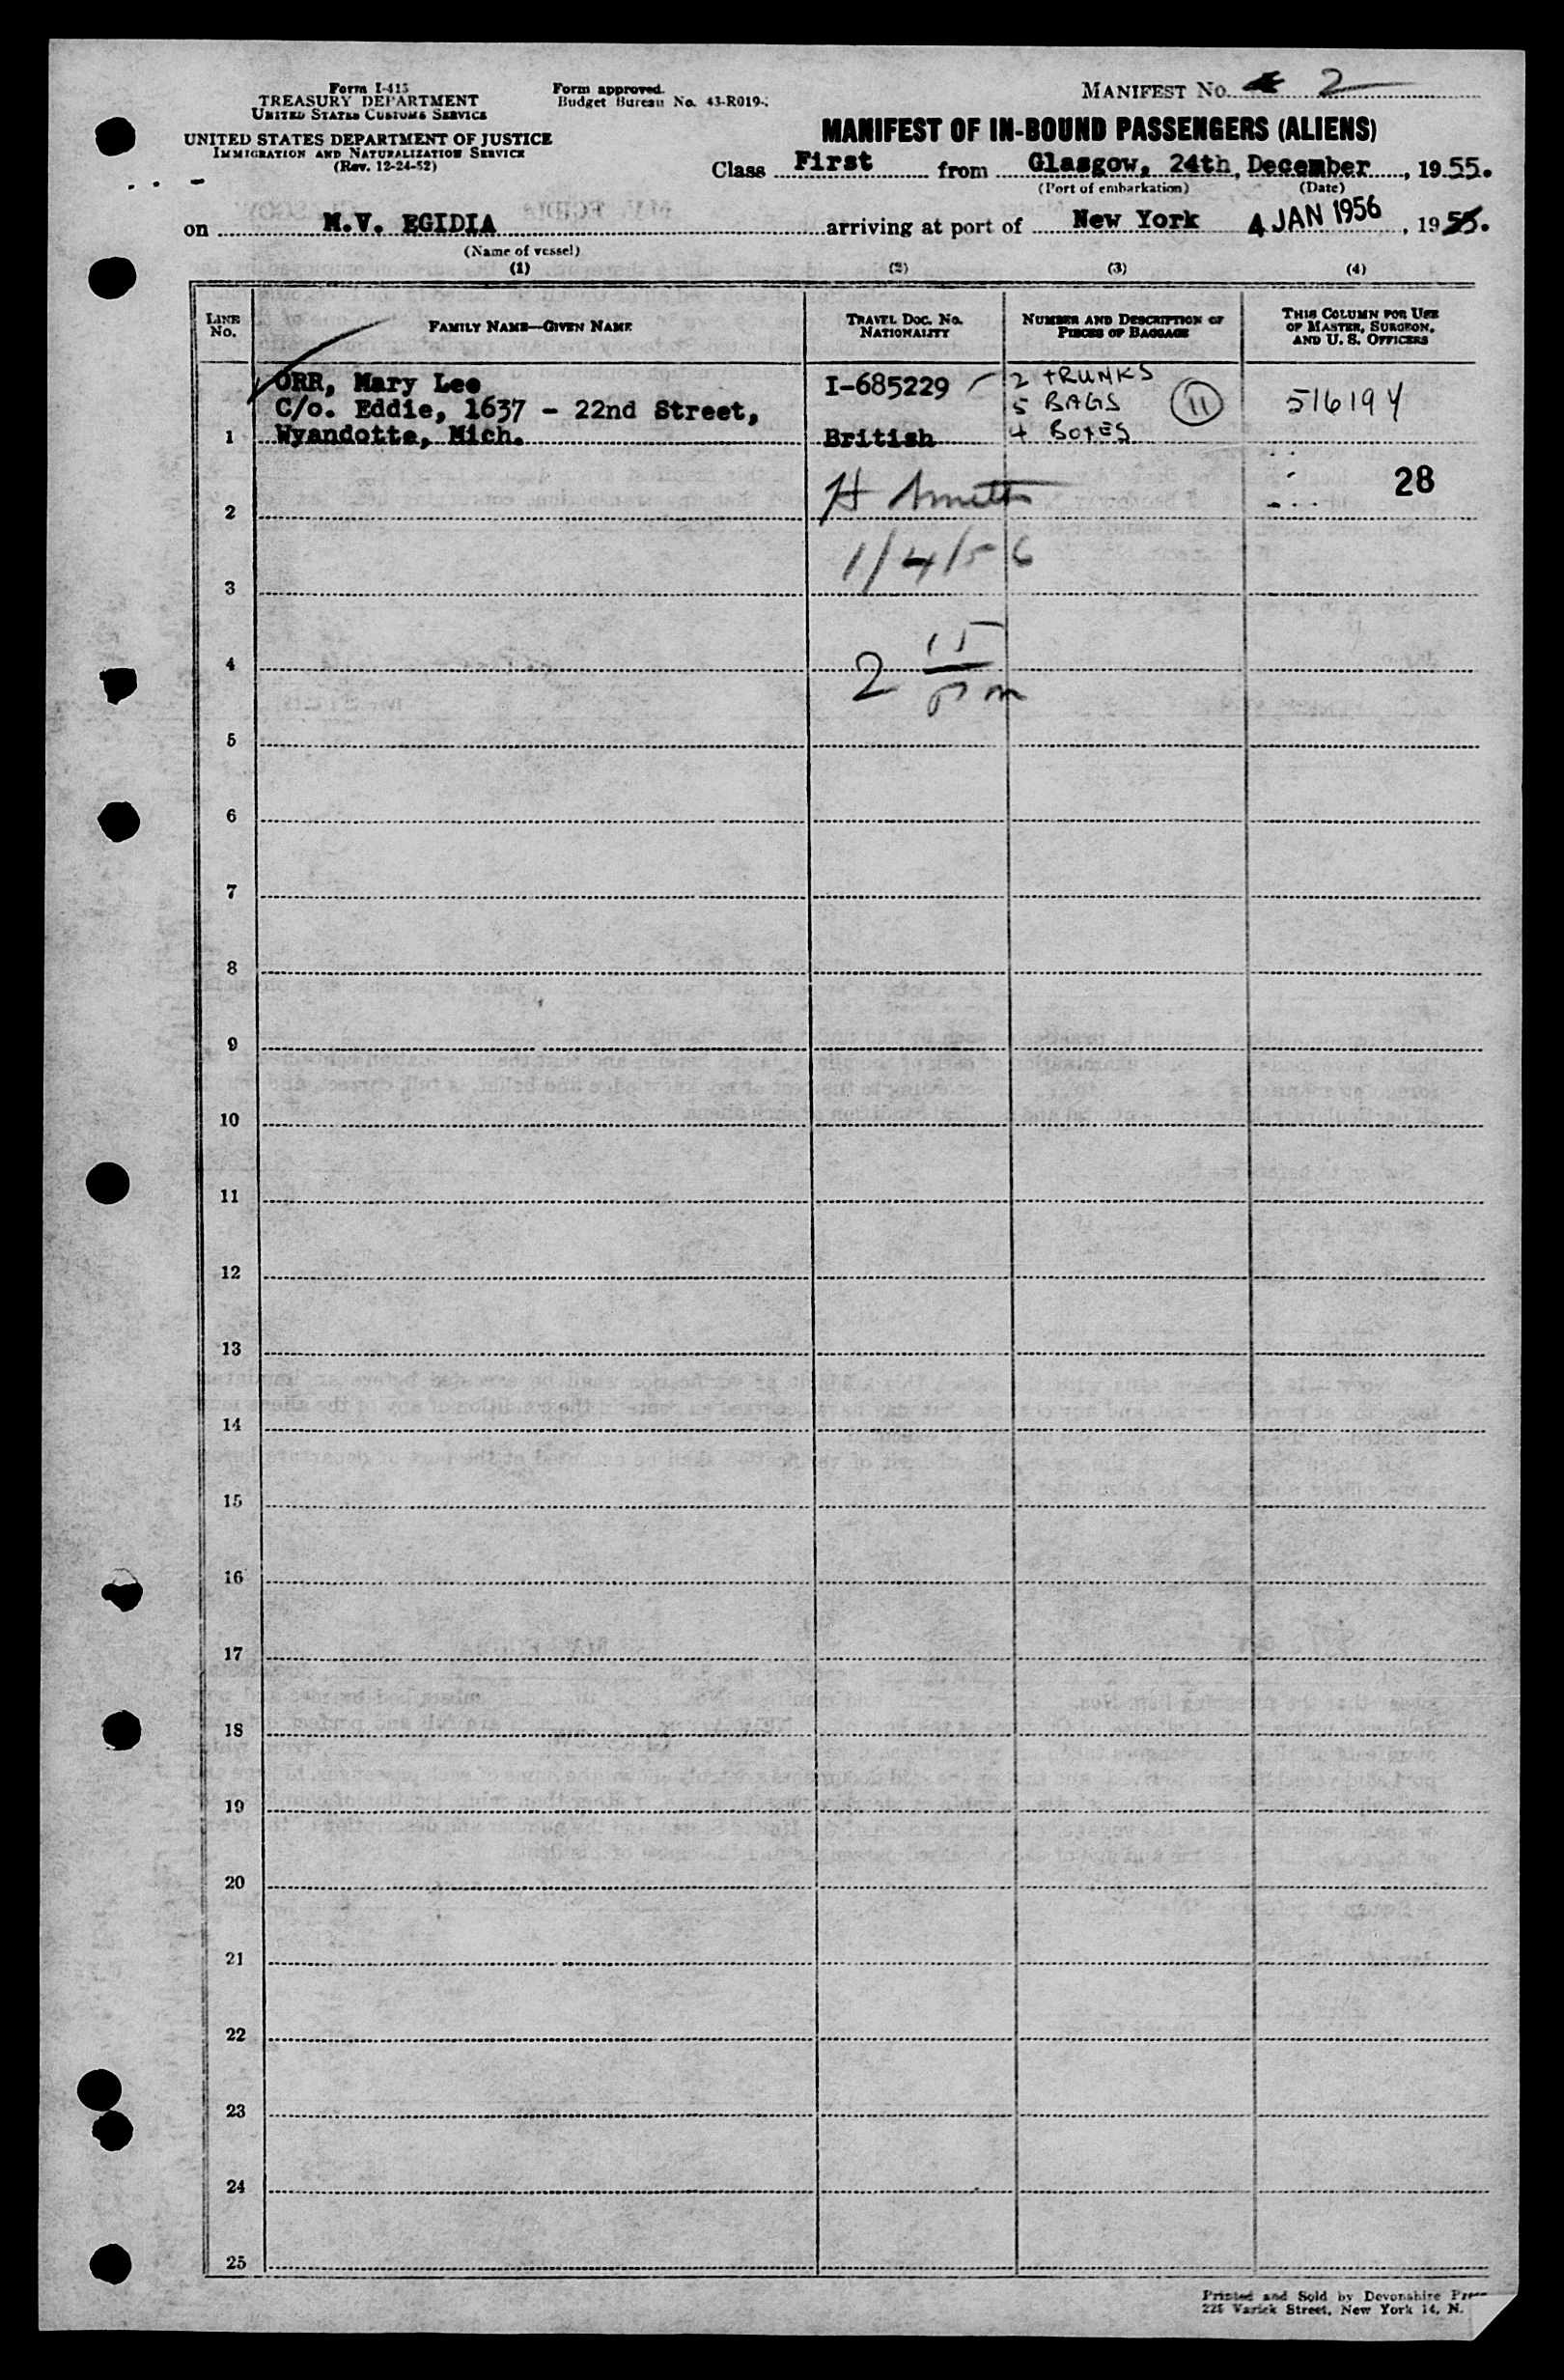 Form I-415
TREASURY DEPARTMENT
UNITED STATES CUSTOMS SERVICE
UNITED STATES DEPARTMENT OF JUSTICE
IMMIGRATION AND NATURALIZATION SERVICE
(Rev. 12-24-52)
Form approved.
Budget Bureau No. 43-R019-
MANIFEST No. 2
MANIFEST OF IN-BOUND PASSENGERS (ALIENS)
Class First from Glasgow, 24th, December, 1955.
(Port of embarkation) (Date)
on M.V. EGIDIA arriving at port of New York 4 JAN 1956, 1955.
(Name of vessel)
(1) (2) (3) (4)
LINE No. FAMILY NAME—GIVEN NAME TRAVEL DOC. No. NATIONALITY NUMBER AND DESCRIPTION OF PIECES OF BAGGAGE THIS COLUMN FOR USE OF MASTER, SURGEON, AND U. S. OFFICERS
ORR, Mary Lee I-685229 2 TRUNKS
C/o. Eddie, 1637 - 22nd Street, 5 BAGS 11 516194
1 Wyandotte, Mich. British 4 BOXES
28
2 H
3 1/4/56
4 2 15 pm
5
6
7
8
9
10
11
12
13
14
15
16
17
18
19
20
21
22
23
24
25
Printed and Sold by Devonshire
225 Varick Street, New York 14, N.